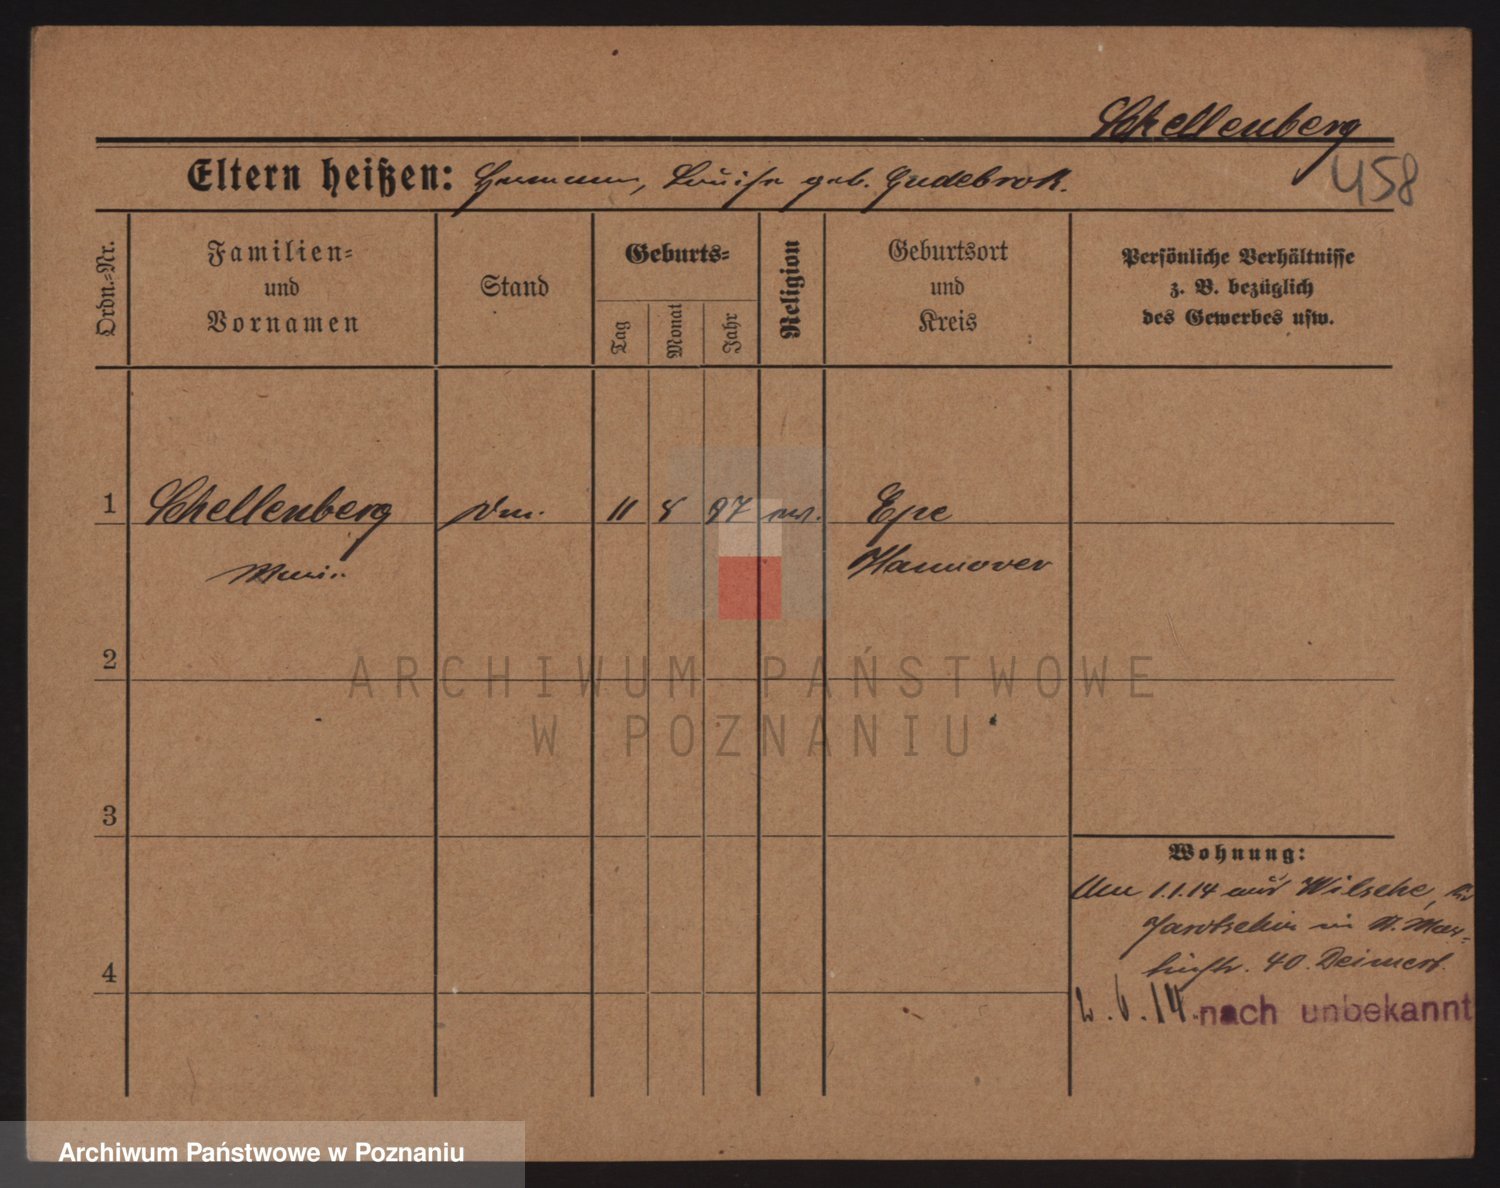 Schellenberg
458
Eltern heißen: Hermann, Louise geb. Gudebrok.
Ordn.-Nr.
Familien-
und
Vornamen
Stand
Geburts-
Tag
Monat
Jahr
Religion
Geburtsort
und
Kreis
Persönliche Verhältnisse
z. B. bezüglich
des Gewerbes usw.
1
Schellenberg
11 8 97
Epe
Hannover
2
ARCHIWUM PAŃSTWOWE
W POZNANIU
3
Wohnung:
1.1.14 aus Wilsche,
Jarotschin in
40.
4
2.6.14. nach unbekannt
Archiwum Państwowe w Poznaniu